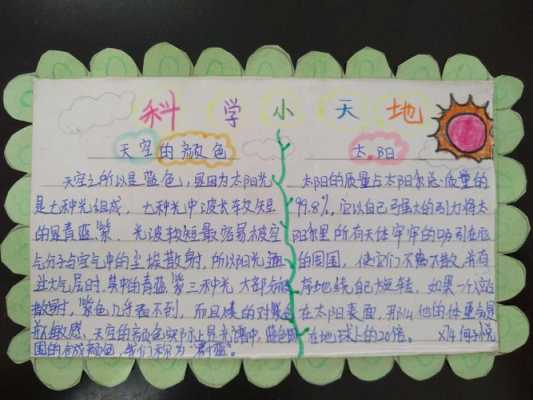 科学小天地
天空的颜色
天空之所以是蓝色,是因为太阳光
是七种光组成,七种光中波长较短
的是青蓝紫,光波较短最容易被空
气分子与空气中的尘埃散射,所以阳光通
过大气层时,其中的青蓝紫三种光大部分被
散射,紫色几乎看不到,而且人的对紫色
不敏感,天空的颜色实际上是光谱中,蓝色
围的合成颜色,我们称为"青蓝"。
太阳
太阳的质量占太阳系总质量的
99.8%,它以自己强大的引力将太
阳系里所有天体牢牢的吸引在它
的周围,使它们不离不散,井然有
有地绕自己旋转,如果一个人站
在太阳表面,那么他的体重会是
在地球上的20倍。